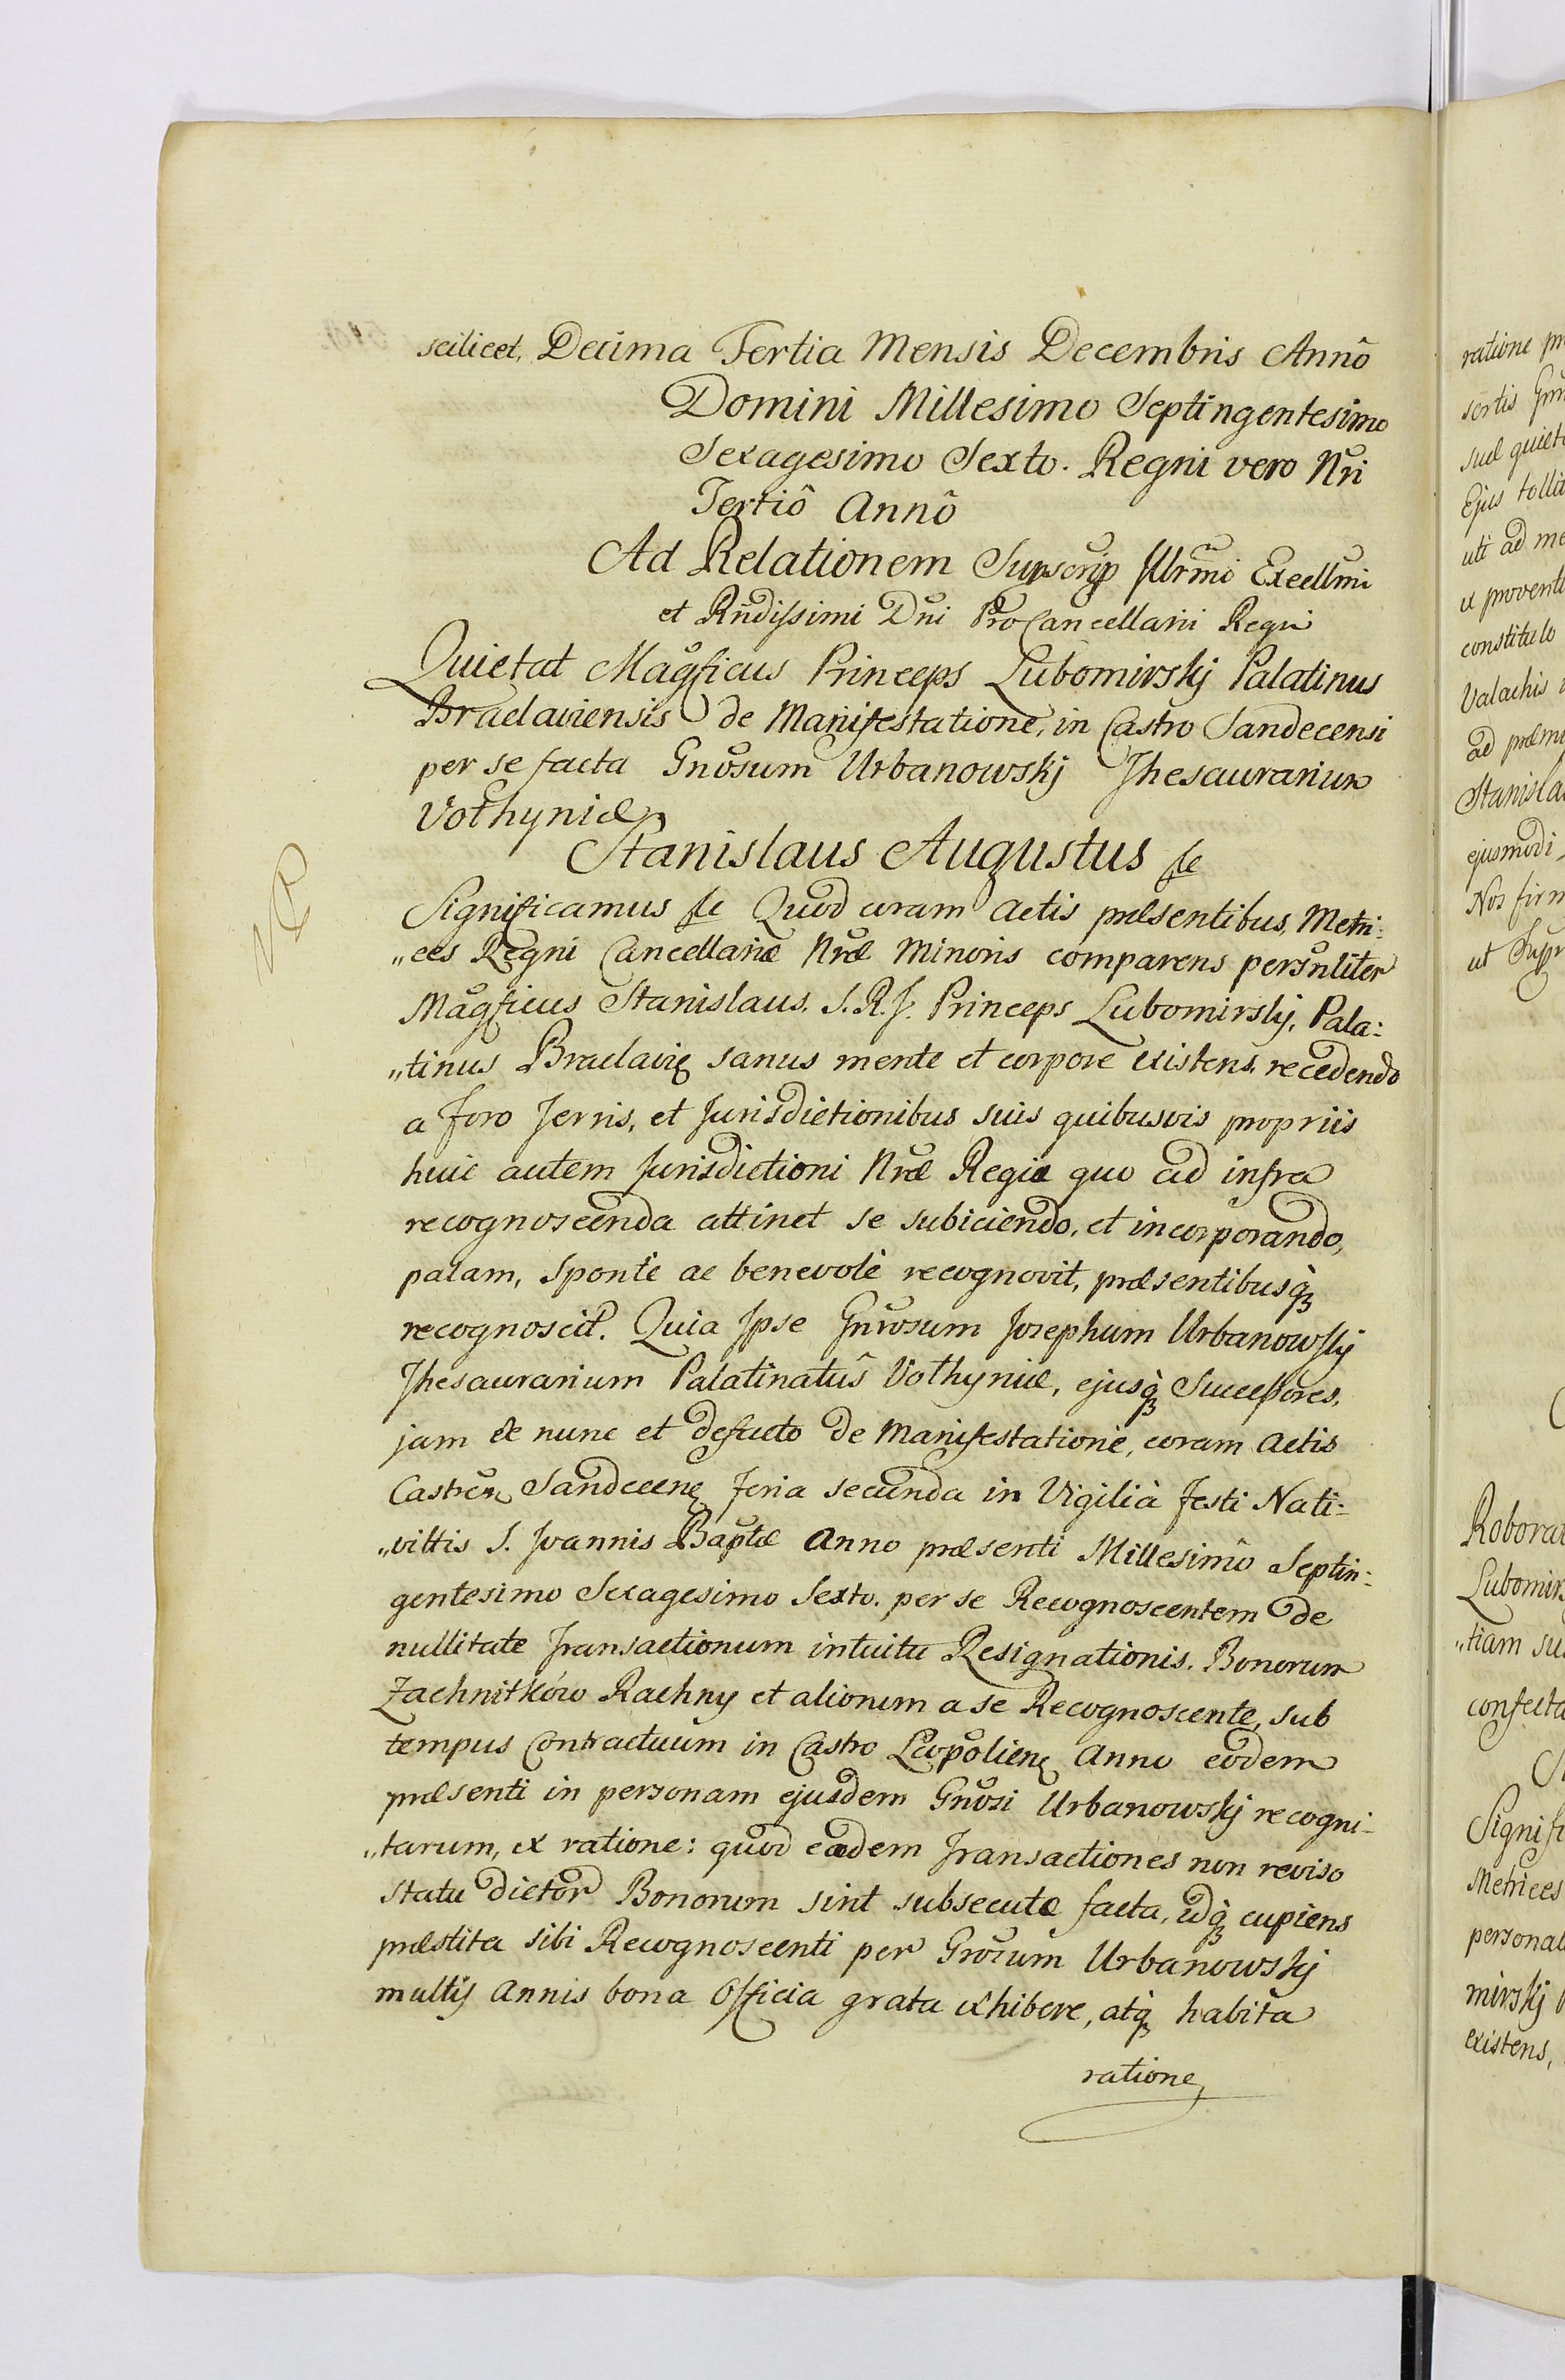 scilicet, Decima Tertia Mensis Decembris Annô
Domini Millesimo Septingentesimo
Sexagesimo Sexto. Regni vero Nri
Tertiô Annô
Ad Relationem Suprascrip Illrmi Excellmi
et Rndissimi Dni ProCancellarii Regni
Quietat Magficus Princeps Lubomirskj Palatinus
Braclaviensis de Manifestatione, in Castro Sandecensi
per se facta Gnosum Urbanowskj Thesaurarium
Volhyniæ
Stanislaus Augustus &c
Significamus &c Quod coram Actis præsentibus, Metri:
„ces Regni Cancellariæ Nræ Minoris comparens persnliter
Magficus Stanislaus. S. R. J. Princeps Lubomirskj, Pala:
„tinus Braclavię sanus mente et corpore existens, recedendo
a Foro Terris, et Jurisdictionibus suis quibusvis propriis
huic autem Jurisdictioni Nræ Regiæ quo ad infra
recognoscenda attinet se subiciendo, et incorporando,
palam, sponte ac benevolè recognovit, præsentibusq
recognoscit. Quia Ipse Gnrosum Josephum Urbanowskj
Thesaurarium Palatinatûs Volhyniæ, ejusq Successores,
jam ex nunc et defacto de Manifestatione, coram Actis
Castren Sandecen Feria secunda in Vigilia Festi Nati:
„vittis S. Joannis Baptæ Anno præsenti Millesimô Septin:
gentesimo Sexagesimo Sexto. per se Recognoscentem de
nullitate Transactionum intuitu Resignationis. Bonorum
Zachnitkow Rachny et aliorum a se Recognoscente, sub
tempus Contractuum in Castro Leopolien Anno eodem
præsenti in personam ejusdem Gnosi Urbanowskj recogni-
„tarum, ex ratione: quod eædem Transactiones non reviso
statu dictor Bonorum sint subsecutæ facta, idq cupiens
præstita sibi Recognoscenti per Grosum Urbanowskj
multis annis bona Officia grata exhibere, atq habita
ratione
ratione
sertis
Ejus
uti ad
et
constituto
Valachis
ad
ejusmodi
Nos
ut
confecta
Metrices
existens,